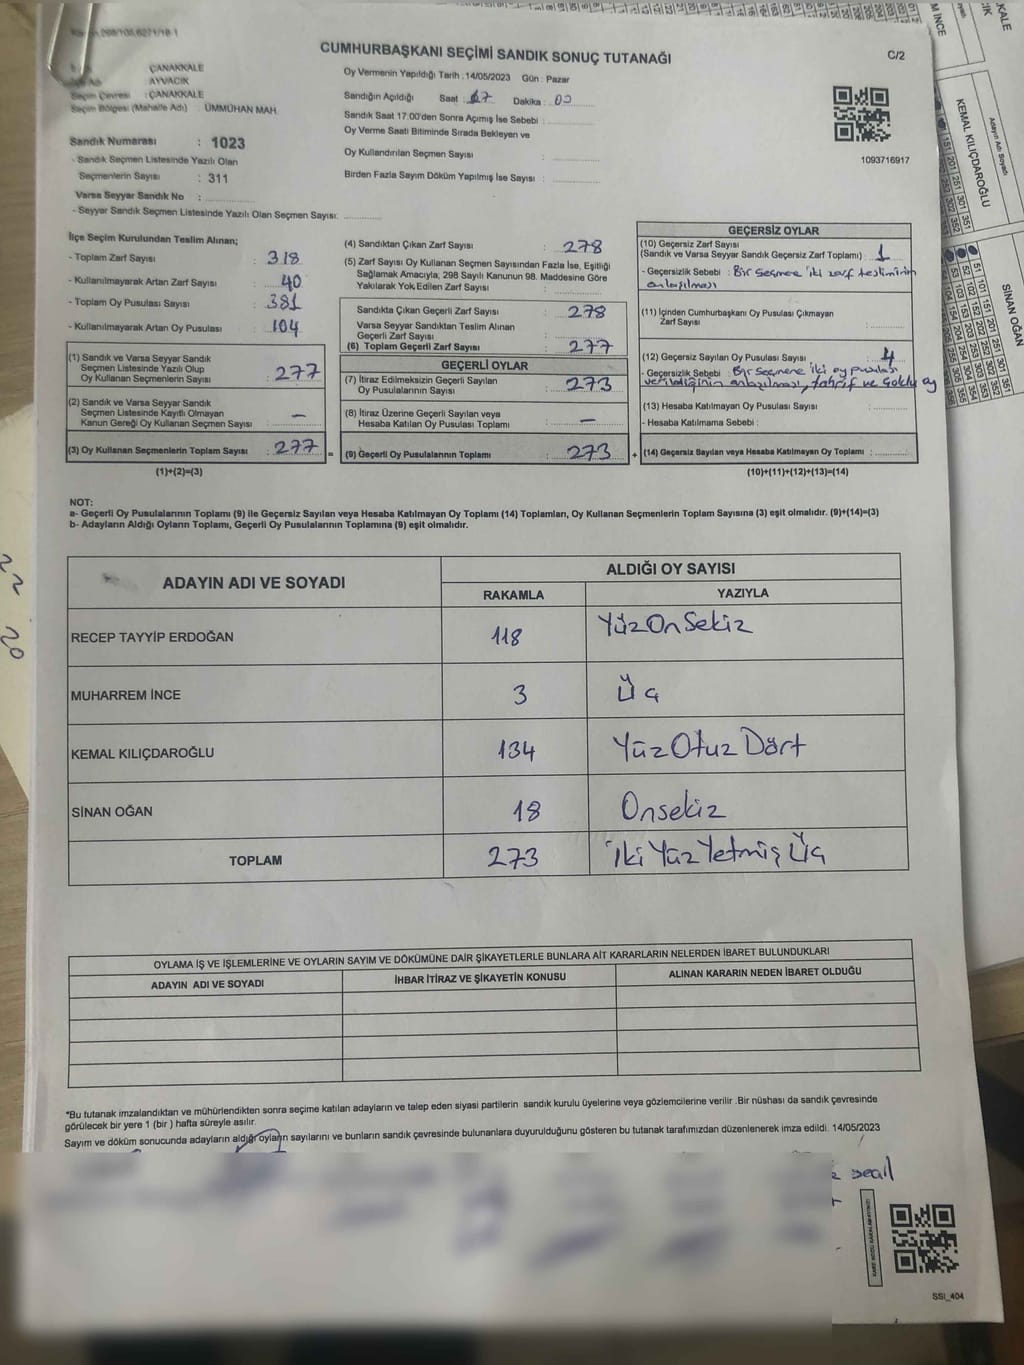 CUMHURBAŞKANI SEÇİMİ SANDIK SONUÇ TUTANAĞI
C/2
ÇANAKKALE
AYVACIK
Seçim Çevresi : ÇANAKKALE
Seçim Bölgesi (Mahalle Adı) : ÜMMÜHAN MAH.
Sandık Numarası : 1023
- Sandık Seçmen Listesinde Yazılı Olan
Seçmenlerin Sayısı : 311
Varsa Seyyar Sandık No :
- Seyyar Sandık Seçmen Listesinde Yazılı Olan Seçmen Sayısı:
Oy Vermenin Yapıldığı Tarih : 14/05/2023 Gün : Pazar
Sandığın Açıldığı Saat : 17 Dakika : 00
Sandık Saat 17:00'den Sonra Açımış İse Sebebi :
Oy Verme Saati Bitiminde Sırada Bekleyen ve
Oy Kullandırılan Seçmen Sayısı :
Birden Fazla Sayım Döküm Yapılmış İse Sayısı :
1093716917
İlçe Seçim Kurulundan Teslim Alınan;
- Toplam Zarf Sayısı : 318
- Kullanılmayarak Artan Zarf Sayısı : 40
- Toplam Oy Pusulası Sayısı : 381
- Kullanılmayarak Artan Oy Pusulası : 104
(1) Sandık ve Varsa Seyyar Sandık
Seçmen Listesinde Yazılı Olup
Oy Kullanan Seçmenlerin Sayısı : 277
(2) Sandık ve Varsa Seyyar Sandık
Seçmen Listesinde Kayıtlı Olmayan
Kanun Gereği Oy Kullanan Seçmen Sayısı : –
(3) Oy Kullanan Seçmenlerin Toplam Sayısı : 277 =
(1)+(2)=(3)
(4) Sandıktan Çıkan Zarf Sayısı : 278
(5) Zarf Sayısı Oy Kullanan Seçmen Sayısından Fazla İse, Eşitliği
Sağlamak Amacıyla, 298 Sayılı Kanunun 98. Maddesine Göre
Yakılarak Yok Edilen Zarf Sayısı :
Sandıkta Çıkan Geçerli Zarf Sayısı : 278
Varsa Seyyar Sandıktan Teslim Alınan
Geçerli Zarf Sayısı :
(6) Toplam Geçerli Zarf Sayısı : 277
GEÇERLİ OYLAR
(7) İtiraz Edilmeksizin Geçerli Sayılan
Oy Pusulalarının Sayısı : 273
(8) İtiraz Üzerine Geçerli Sayılan veya
Hesaba Katılan Oy Pusulası Toplamı : –
(9) Geçerli Oy Pusulalarının Toplamı : 273 +
GEÇERSİZ OYLAR
(10) Geçersiz Zarf Sayısı
(Sandık ve Varsa Seyyar Sandık Geçersiz Zarf Toplamı) : 1
- Geçersizlik Sebebi : Bir seçmene iki zarf tesliminin
anlaşılması
(11) İçinden Cumhurbaşkanı Oy Pusulası Çıkmayan
Zarf Sayısı :
(12) Geçersiz Sayılan Oy Pusulası Sayısı : 4
- Geçersizlik Sebebi : Bir seçmene iki oy pusulası
verildiğinin anlaşılması, tahrif ve çoklu oy
(13) Hesaba Katılmayan Oy Pusulası Sayısı :
- Hesaba Katılmama Sebebi :
(14) Geçersiz Sayılan veya Hesaba Katılmayan Oy Toplamı :
(10)+(11)+(12)+(13)=(14)
NOT:
a- Geçerli Oy Pusulalarının Toplamı (9) ile Geçersiz Sayılan veya Hesaba Katılmayan Oy Toplamı (14) Toplamları, Oy Kullanan Seçmenlerin Toplam Sayısına (3) eşit olmalıdır. (9)+(14)=(3)
b- Adayların Aldığı Oyların Toplamı, Geçerli Oy Pusulalarının Toplamına (9) eşit olmalıdır.
ADAYIN ADI VE SOYADI
ALDIĞI OY SAYISI
RAKAMLA YAZIYLA
RECEP TAYYİP ERDOĞAN 118 YüzOnSekiz
MUHARREM İNCE 3 Üç
KEMAL KILIÇDAROĞLU 134 YüzOtuzDört
SİNAN OĞAN 18 Onsekiz
TOPLAM 273 İkiYüzYetmişÜç
OYLAMA İŞ VE İŞLEMLERİNE VE OYLARIN SAYIM VE DÖKÜMÜNE DAİR ŞİKAYETLERLE BUNLARA AİT KARARLARIN NELERDEN İBARET BULUNDUKLARI
ADAYIN ADI VE SOYADI İHBAR İTİRAZ VE ŞİKAYETİN KONUSU ALINAN KARARIN NEDEN İBARET OLDUĞU
*Bu tutanak imzalandıktan ve mühürlendikten sonra seçime katılan adayların ve talep eden siyasi partilerin sandık kurulu üyelerine veya gözlemcilerine verilir .Bir nüshası da sandık çevresinde
görülecek bir yere 1 (bir ) hafta süreyle asılır.
Sayım ve döküm sonucunda adayların aldığı oyların sayılarını ve bunların sandık çevresinde bulunanlara duyurulduğunu gösteren bu tutanak tarafımızdan düzenlenerek imza edildi. 14/05/2023
SSI_404
22
20
M İNCE
KEMAL KILIÇDAROĞLU
Adayın Adı Soyadı
SİNAN OĞAN